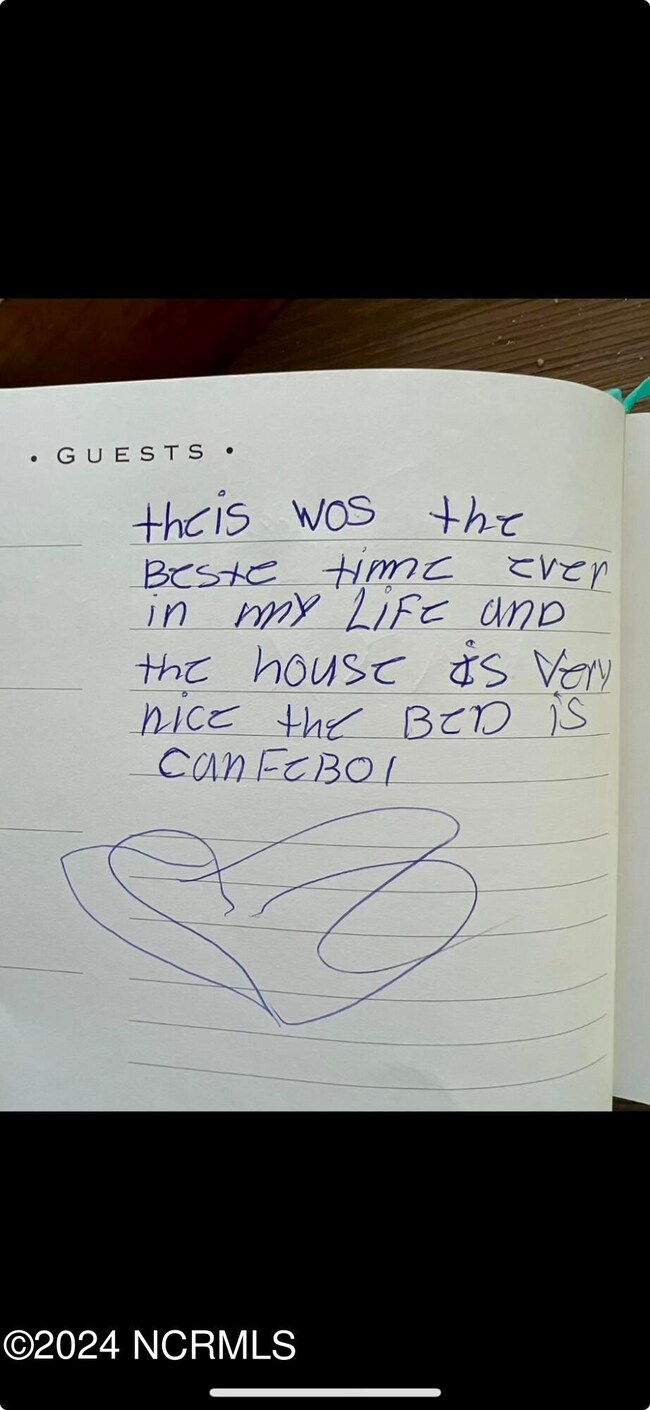 • GUESTS •
theis wos the
Beste time ever
in my LiFe anD
the house is Very
nice the BeD is
canFeBOl
©2024 NCRMLS